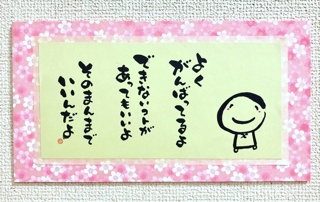 よく
がんばってるよ
できないコトが
あってもいいよ
そのまんまで
いいんだよ